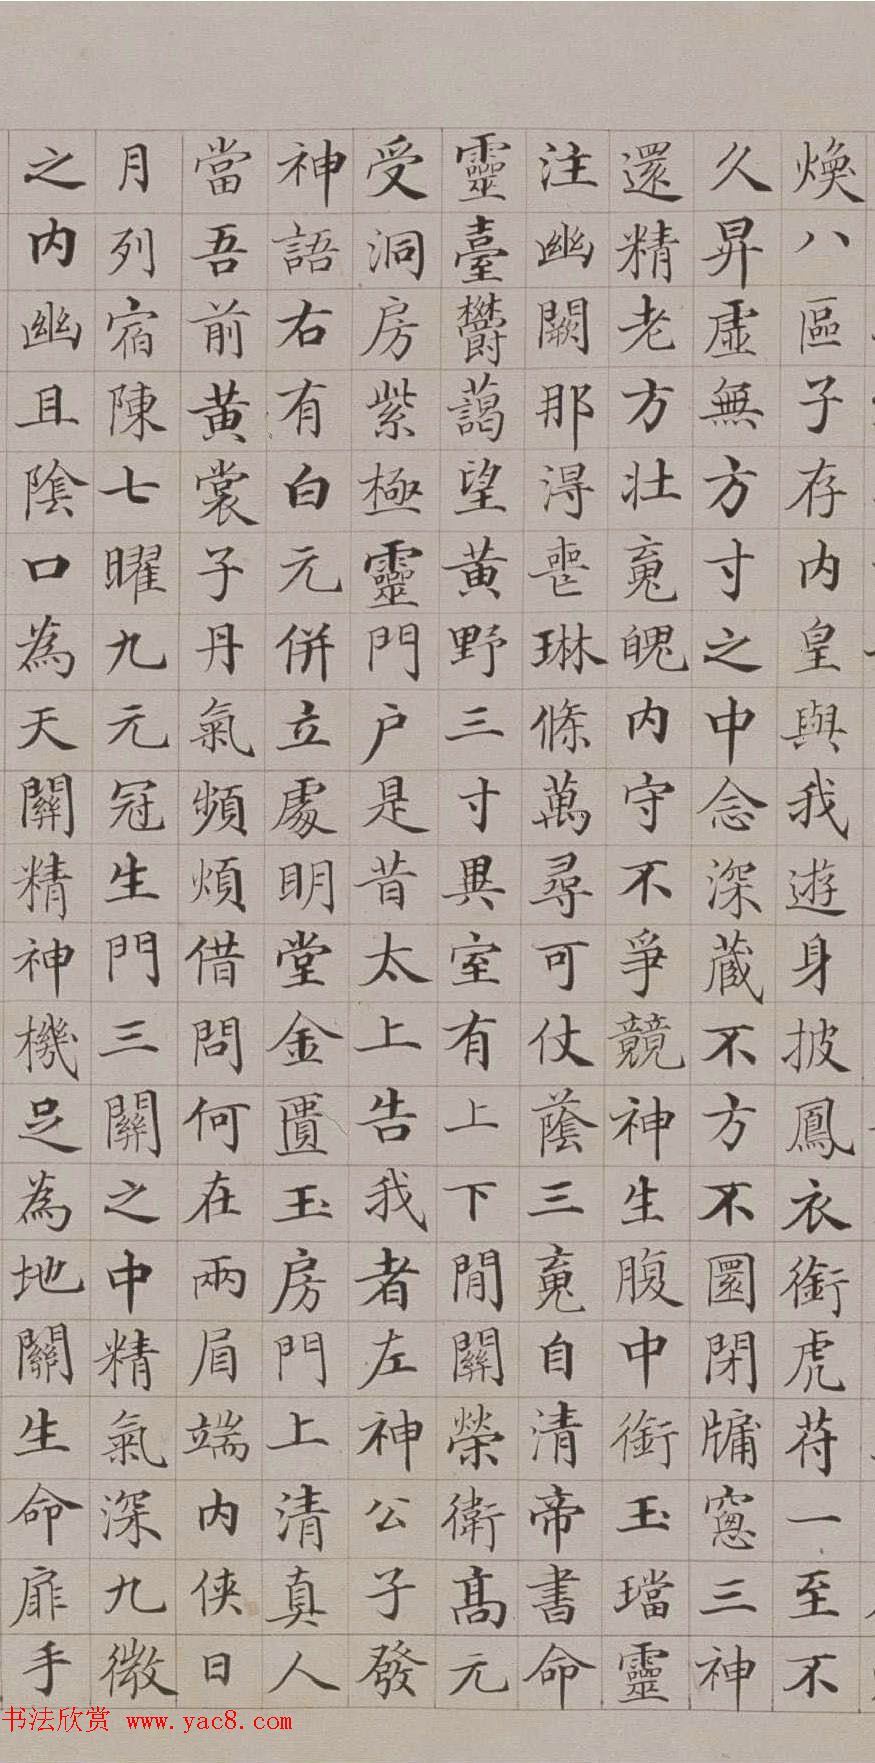 煥八區子存内皇與我遊身披鳳衣銜虎苻一至不
久昇虛無方寸之中念深藏不方不圓閉牖窻三神
還精老方壯䰟魄内守不爭競神生腹中銜玉璫靈
注幽闕那淂喪琳條萬尋可仗蔭三䰟自清帝書命
靈臺欎藹望黃野三寸異室有上下閒關榮衛髙元
受洞房紫極靈門户是昔太上告我者左神公子發
神語右有白元併立處明堂金匱玉房門上清真人
當吾前黃裳子丹氣頻煩借問何在兩眉端内俠日
月列宿陳七曜九元冠生門三關之中精氣深九微
之内幽且隂口為天關精神機足為地關生命扉手
书法欣赏 www.yac8.com